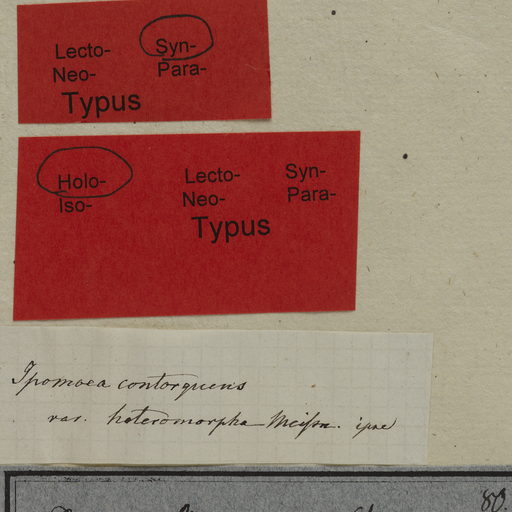 Lecto- Syn-
Neo- Para-
Typus
Holo- Lecto- Syn-
Iso- Neo- Para-
Typus
Ipomoea contorquens
var. heteromorpha Meiſsn. ipse
80.